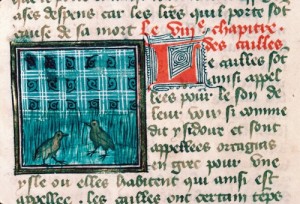 as despens car les liés quil porte sōt
cause de sa mort Le viii.e chapitre
des cailles
Le cailles sōt
ainsi appel
lees pour le son de
leur voiz si comme
dit ysidore et sont
appellees ortagias
en grec pour vne
ysle ou elles habitent qui ainsi est
appellee. les cailles ont certain tēps